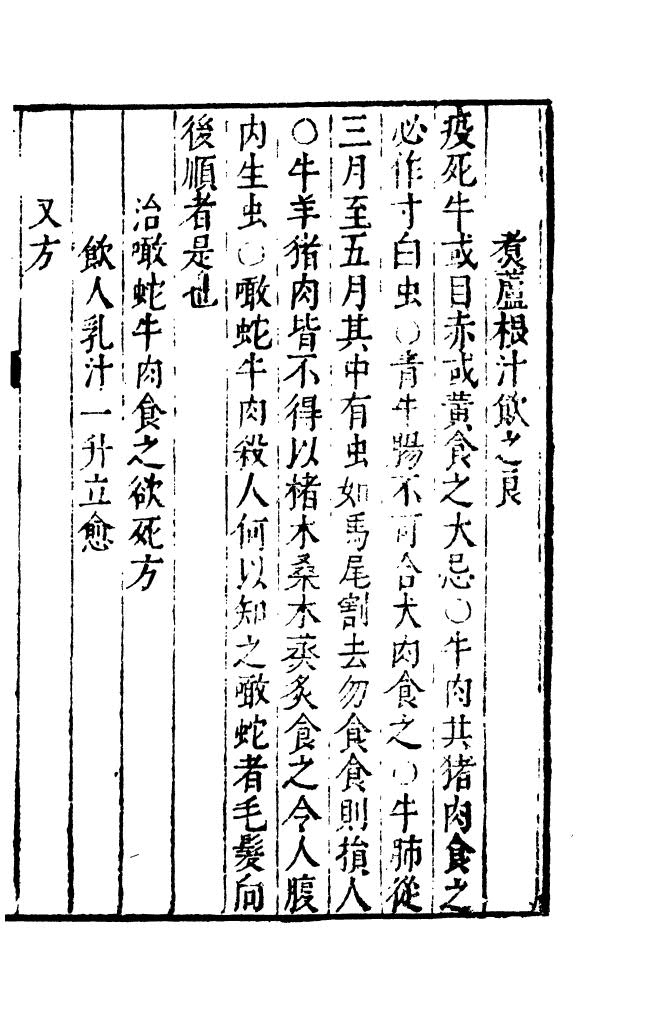 煑蘆根汁飲之良
疫死牛或目赤或黃食之大忌○牛肉共猪肉食之
必作寸白虫○青牛腸不可合犬肉食之○牛肺從
三月至五月其中有虫如馬尾割去勿食食則損人
○牛羊猪肉皆不得以楮木桑木蒸炙食之令人腹
内生虫○噉蛇牛肉殺人何以知之噉蛇者毛髮向
後順者是也
治噉蛇牛肉食之欲死方
飲人乳汁一升立愈
又方